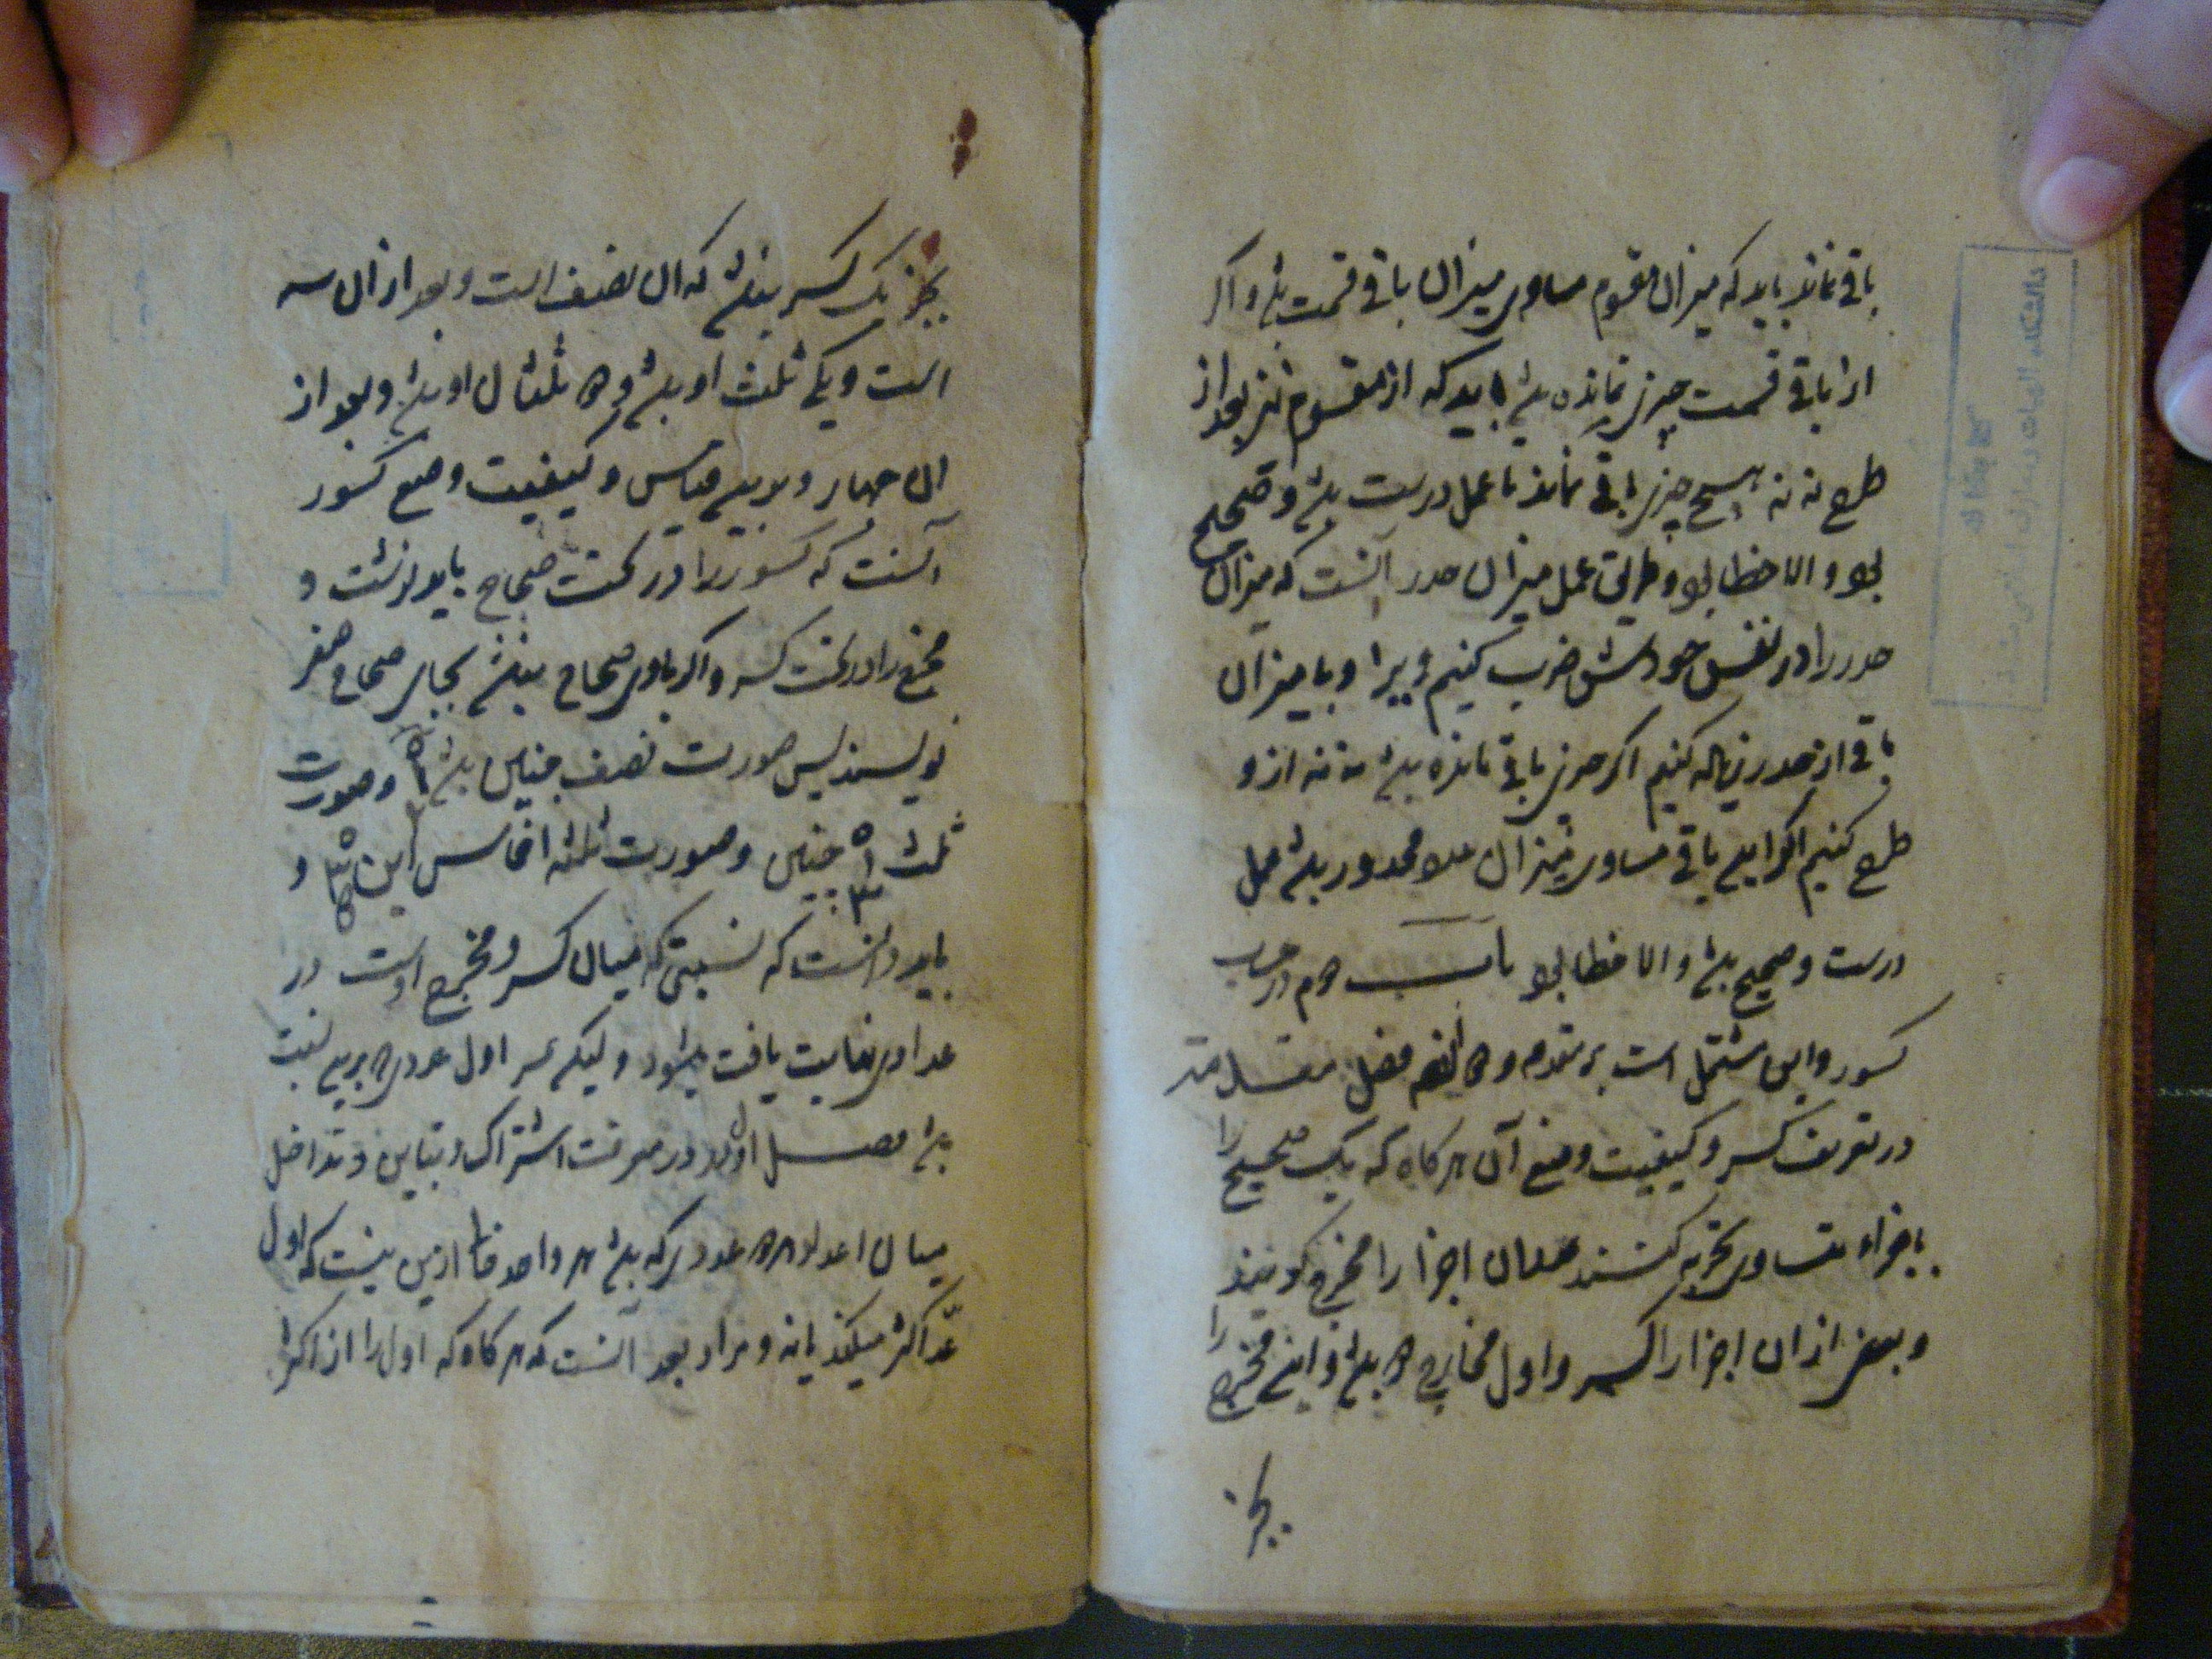 باقی نماند باید که میزان مقسوم مساوی میزان باقی قسمت باشد و اگر
از باقی قسمت چیزی نمانده باشد باید که از مقسوم نیز بعد از
طرح نه نه هیچ چیز باقی نماند تا عمل درست باشد و صحیح
بود و الا خطا بود و طریق عمل میزان جذر آنست که میزان
جذر را در نفس خودش ضرب کنیم و یرا و با میزان
باقی از جذر زیاله کنیم اگر چیزی باقی مانده باشد نه نه ازو
طرح کنیم اگر این باقی مساوی میزان محذور باشد عمل
درست و صحیح باشد و الا خطا بود باب دوم در حساب
کسور و این مشتمل است بر مقدمه و فصل مقدمه
در تعریف کسر و کیفیت وضع آن هر کاه که یک صحیح را
باجزاء متساوی تجزیه کنند همان اجزا را مخرج کویند
و بعضی از ان اجزا را کسر و اول مخارج دو باشد و این مخرج را
بجز
بجز یک کسر نباشد که ان نصف است و بعد از ان سه
است و یکی ثلث او باشد و دو ثلثان او باشد و بعد از
ان چهار و برین قیاس و کیفیت وضع کسور
آنست که کسور را در تحت صحاح باید نوشت و
مخرج را در تحت کسر و اگر با وی صحاح نباشد بجای صحاح صفر
نویسند پس صورت نصف چنین باشد ۰ ۱ ۲ و صورت
ثلث ۰ ۱ ۳ چنین و صورت ثلثه اخماس این ۰ ۳ ۵ و
باید دانست که نسبتی که میان کسر و مخرج اوست در
اعدادی نهایت یافت میشود و لیکن اول عددی که برین نسبت
باشد فصل اول در معرفت اشتراک و تباین و تداخل
میان اعداد هر دو عددی که باشد هر واحد ازین نیست که اول
عد اکثر میکند یا نه و مراد بعد آنست که هر کاه که اول را از اکثر